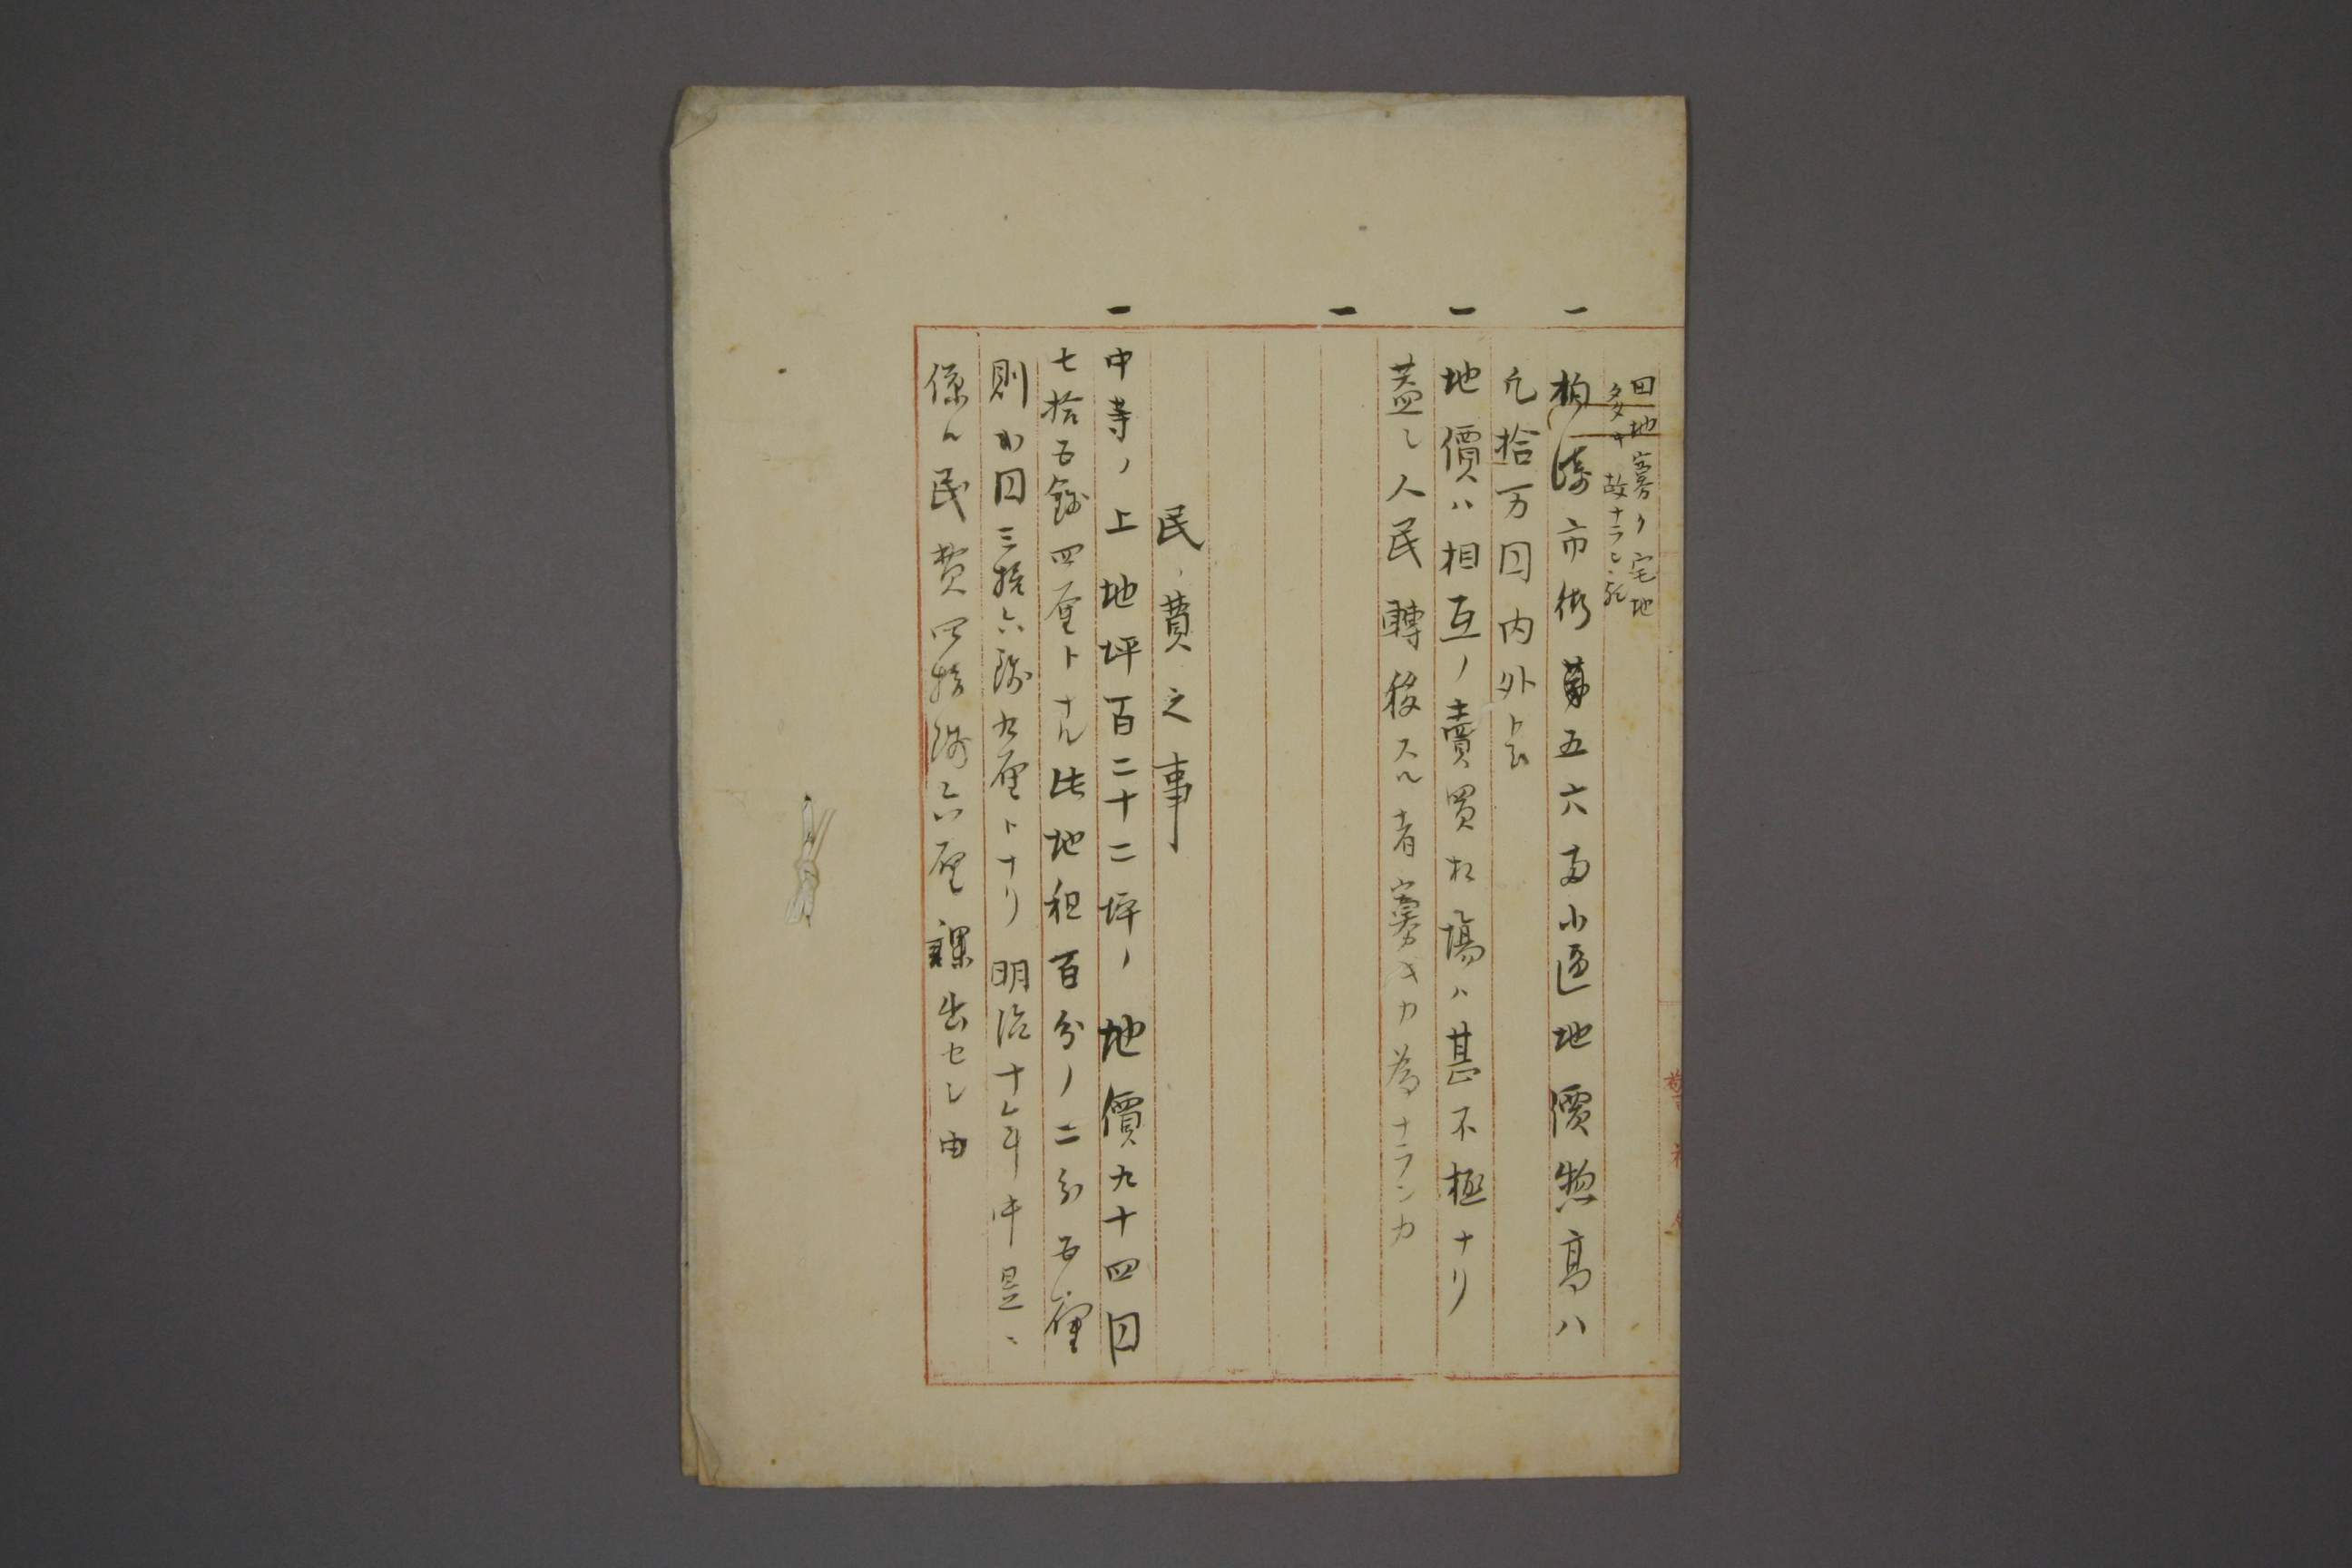 田地寡ク宅地
多キ故ナラン歟
一 柏崎市街第五六両小区地價惣高ハ
凡拾万円内外ト云
一 地價ハ相互ノ賣買相場ハ甚不極ナリ
蓋シ人民轉移スル者寡キカ為ナランカ
一
民費之事
一 中等ノ上地坪百二十二坪ノ地價九十四円
七拾五銭四厘トナル此地租百分ノ二分五厘
則弐円三拾六銭九厘トナリ明治十年中是ニ
係ル民費四拾銭六厘課出セシ由